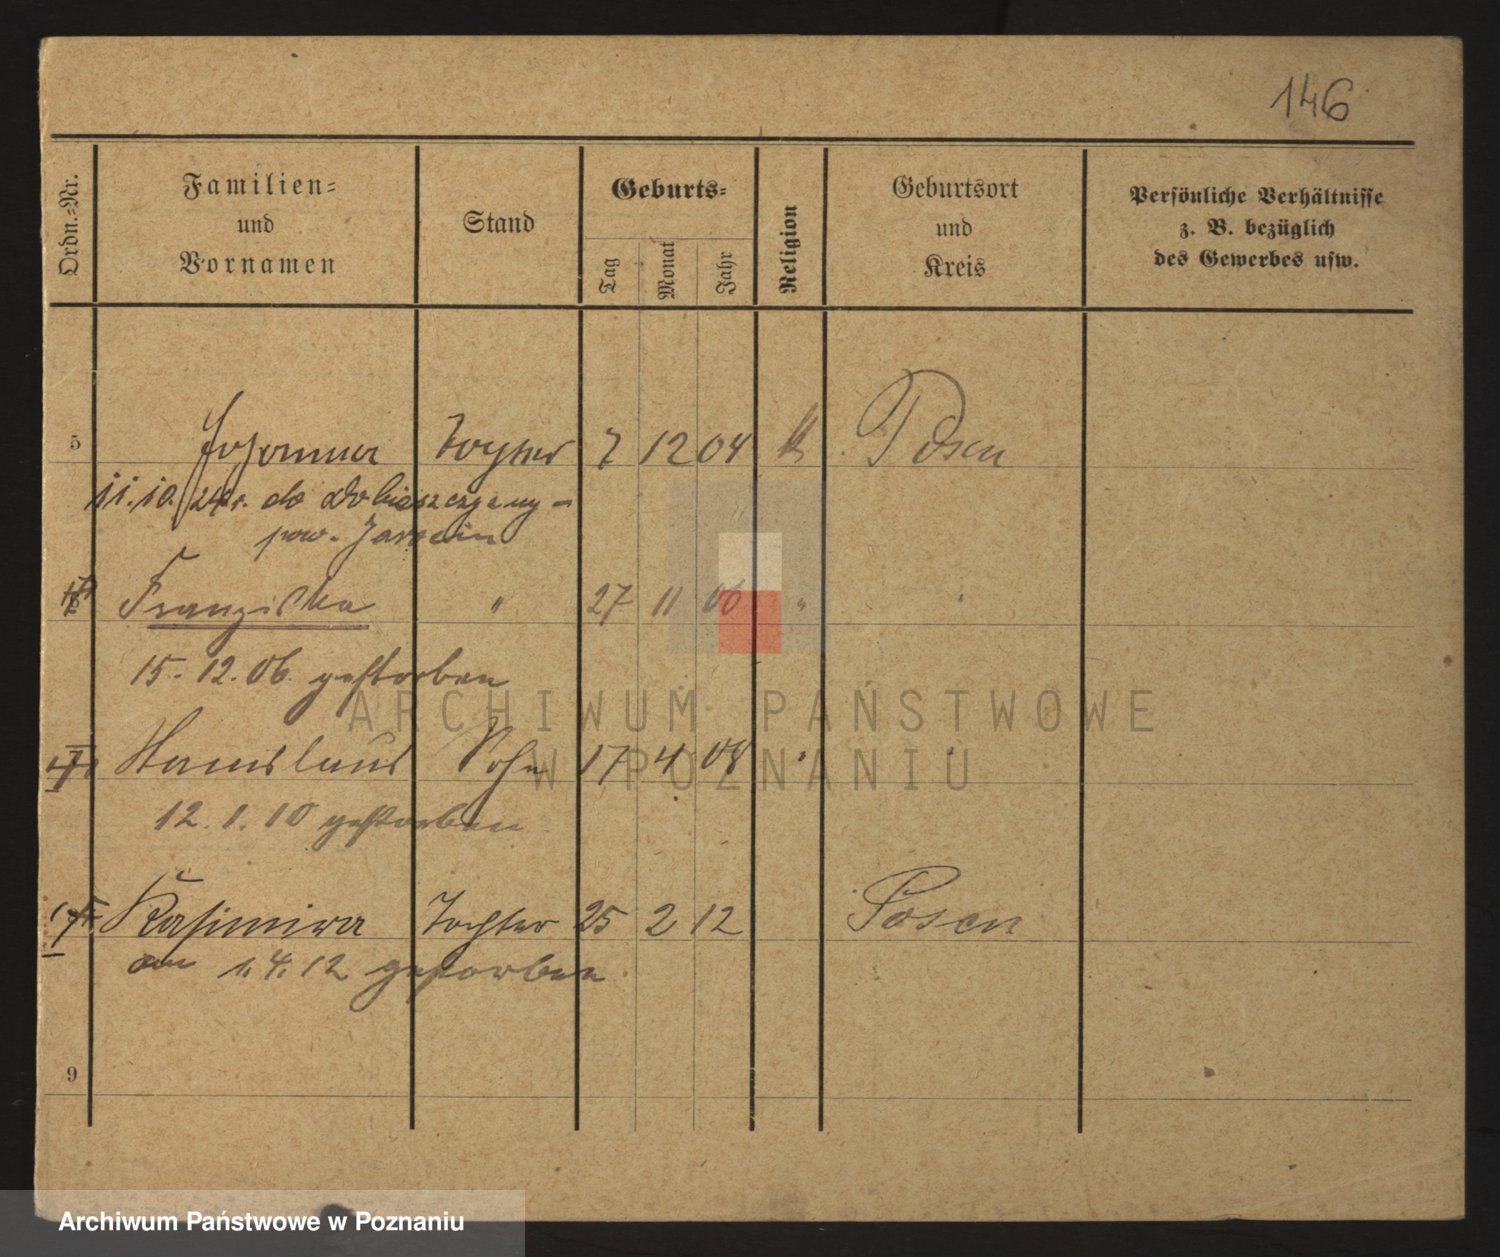 146
Ordn.=Nr.
Familien=
und
Vornamen
Stand
Geburts=
Tag
Monat
Jahr
Religion
Geburtsort
und
Kreis
Persönliche Verhältnisse
z. B. bezüglich
des Gewerbes usw.
5 Johanna Tochter 7 12 04 k Posen
11.10. 24 r. do Dobieszczyzny -
pow. Jarocin
Franziska " 27 11 06 "
15. 12. 06. gestorben
Stanislaus Sohn 17 4 08 "
12. 1. 10 gestorben
Kasimira Tochter 25 2 12 Posen
am 1. 4. 12 gestorben.
9
ARCHIWUM PAŃSTWOWE
W POZNANIU
Archiwum Państwowe w Poznaniu